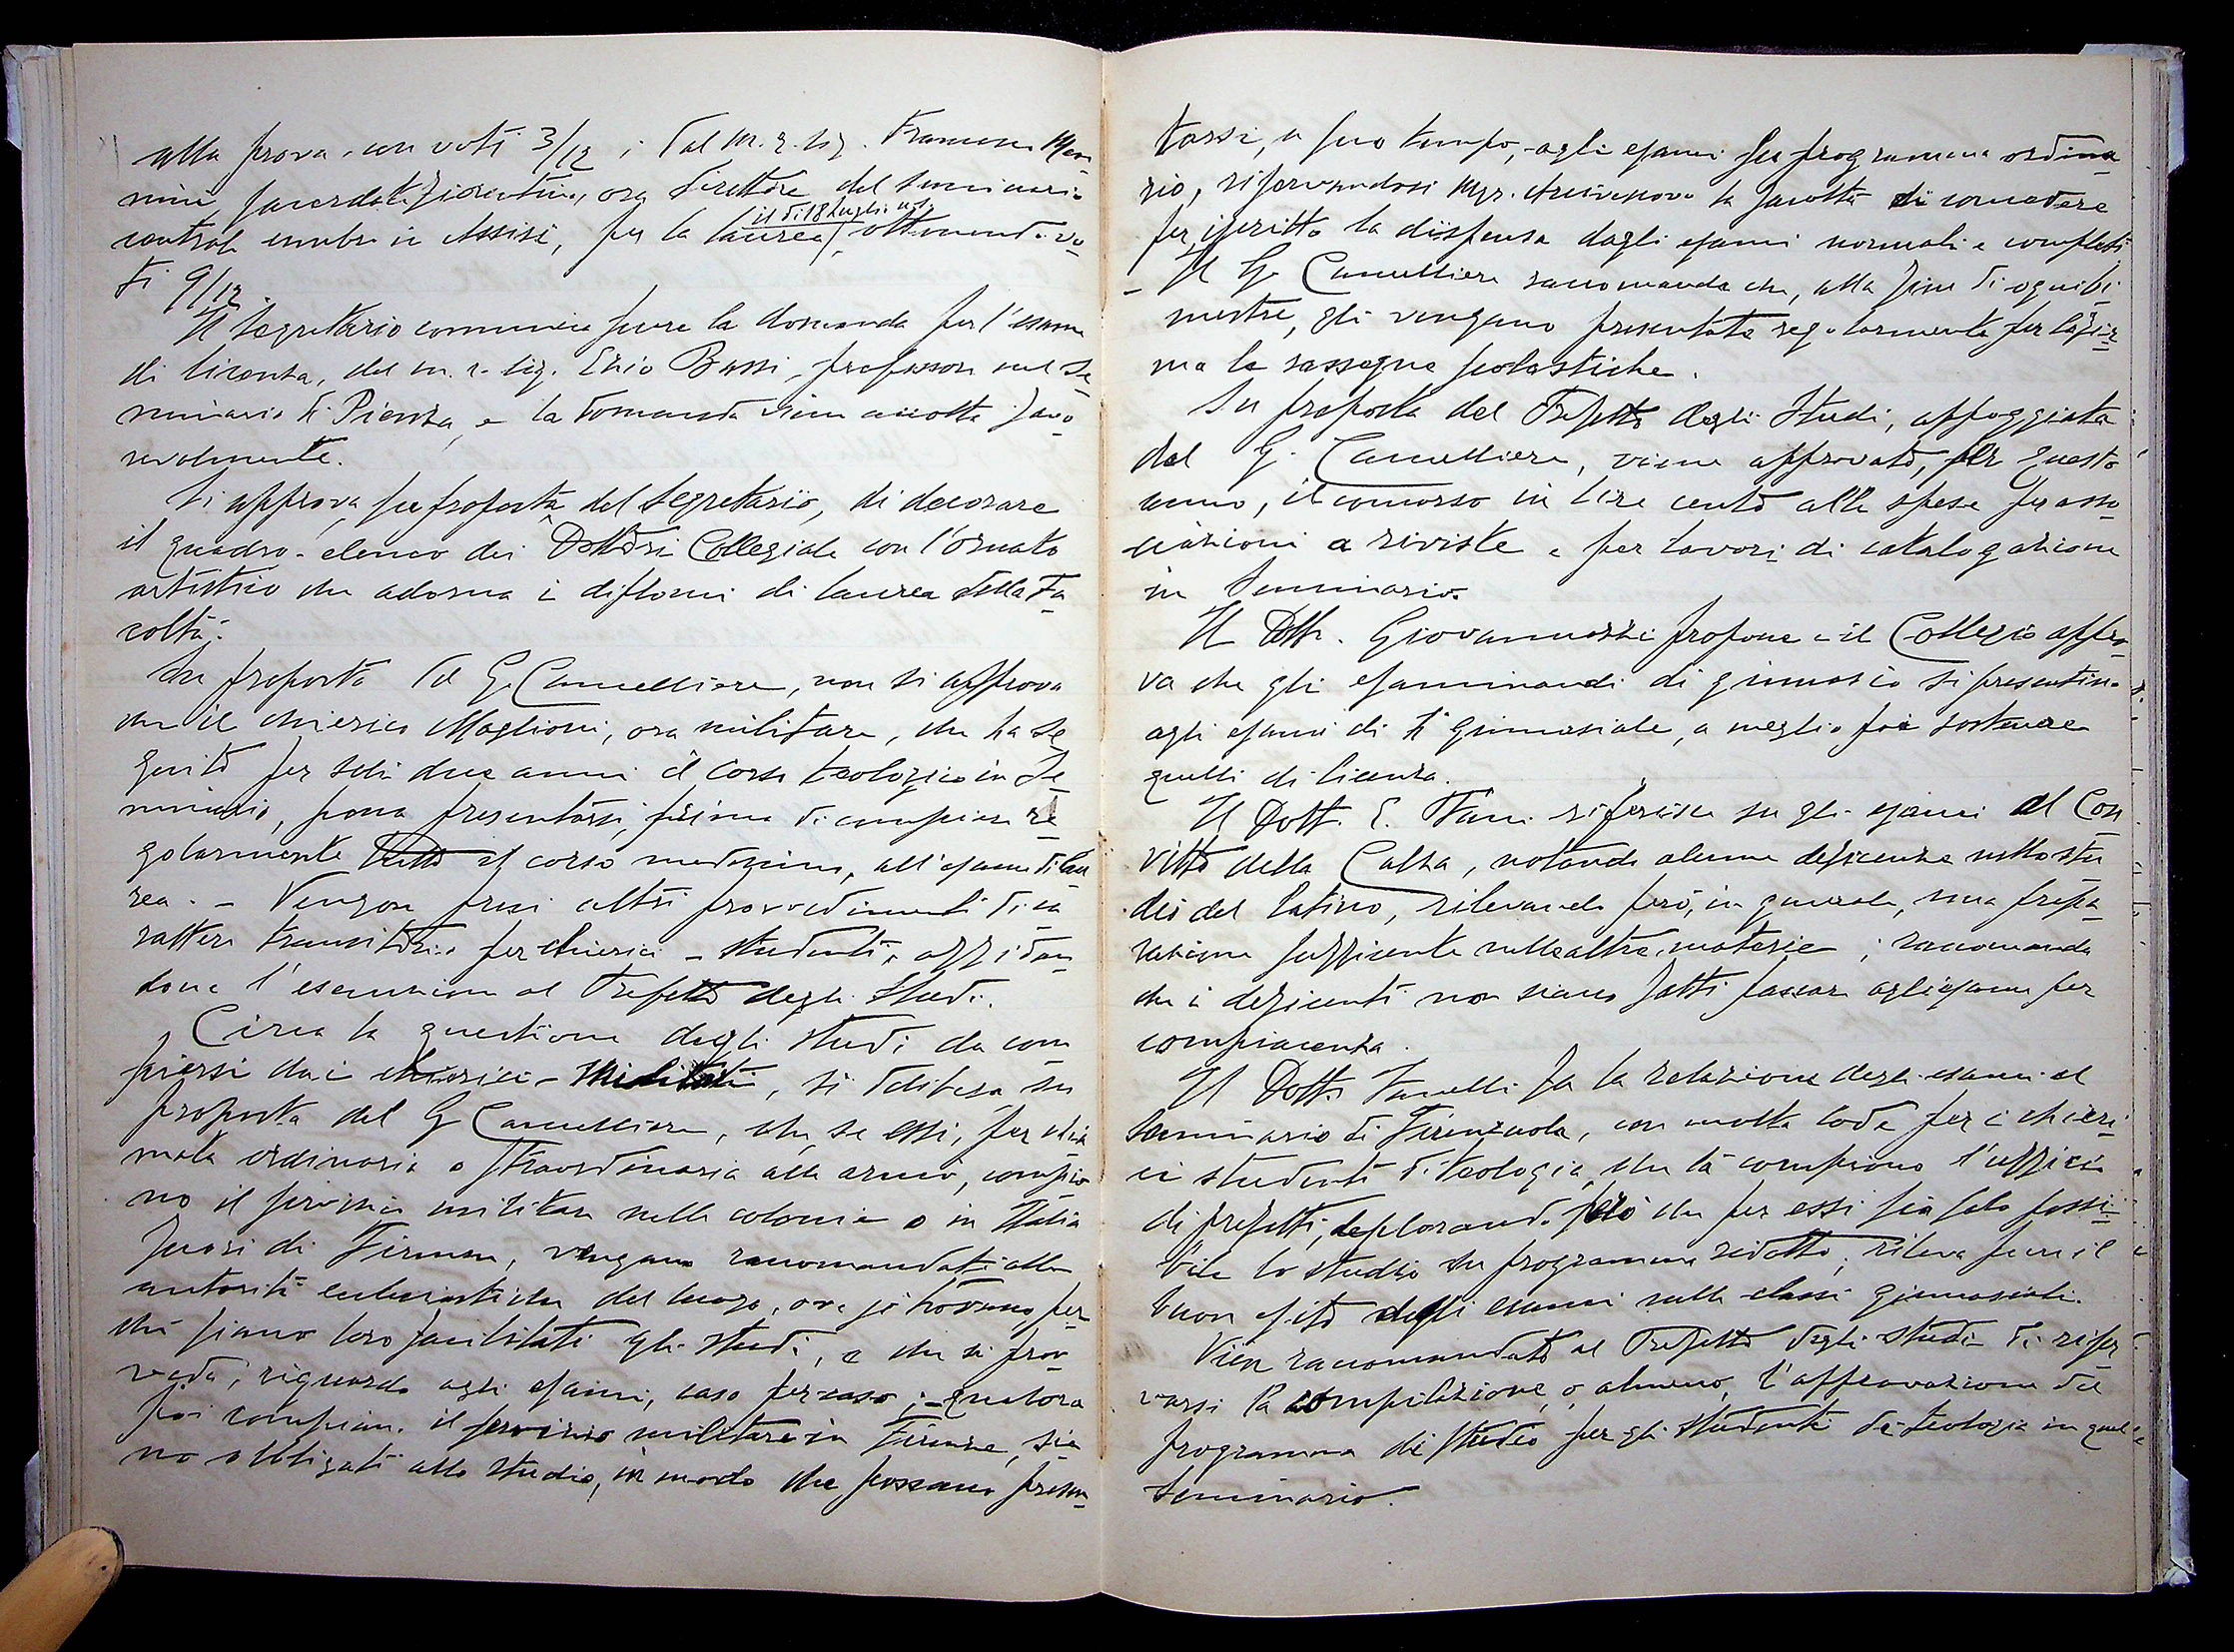 alla prova, con voti 3/12; dal m. r. sig. Francesco Man
nini sacerdote fiorentino, ora Direttore del Seminario
centrale umbro in Assisi, per la laurea, il dì 18 luglio u.s. ottenendo vo
ti 9/12.
Il Segretario comunica pure la domanda per l'esame
di licenza, del m. r. sig. Enio Bassi, professore nel Se
minario di Pienza, e la domanda vien accolta favo
revolmente.
Si approva, su proposta del Segretario, di decorare
il quadro-elenco dei Dottori Collegiale con l'ornato
artistico che adorna i diplomi di laurea della Fa
coltà.
Su proposta del G. Cancelliere, non si approva
che il chierico Maglioni, ora militare, che ha se
guito per soli due anni il corso teologico in Se
minario, possa presentarsi, prima di compiere re
golarmente tutto il corso medesimo, all'esame di lau
rea. - Vengon presi altri provvedimenti di ca
rattere transitorio per chierici-studenti, affidan
done l'esecuzione al Prefetto degli Studi.
Circa la questione degli studi da com
piersi dai chierici-militari, si delibera su
proposta del G. Cancelliere, che, se essi, per chia
mata ordinaria o straordinaria alle armi, compio
no il servizio militare nelle colonie o in Italia
fuori di Firenze, vengano raccomandati alle
autorità ecclesiastiche del luogo, ove si trovano, per
chè siano loro facilitati gli studi, e che si prov
veda, riguardo agli esami, caso per caso; - qualora
poi compiano il servizio militare in Firenze, sia
no obbligati allo studio, in modo che possano presen
tarsi, a suo tempo, agli esami su programma ordina
rio, riservandosi Mgr. Arcivescovo la facoltà di concedere
per iscritto la dispensa dagli esami normali e completi
- Il G. Cancelliere raccomanda che, alla fine di ogni bi
mestre, gli vengano presentate regolarmente per la fir
ma le rassegne scolastiche.
Su proposta del Prefetto degli Studi, appoggiata
dal G. Cancelliere, viene approvato, per questo
anno, il concorso in lire cento alle spese per asso
ciazioni a riviste e per lavori di catalogazione
in Seminario.
Il Dott. Giovannozzi propone e il Collegio appro
va che gli esaminandi di ginnasio si presentino
agli esami di Va ginnasiale, a meglio poi sostenere
quelli di licenza.
Il Dott. E. Nanni riferisce su gli esami al Con
vitto della Calza, notando alcune deficenze nello stu
dio del latino, rilevando però, in generale, una prepa
razione sufficente nelle altre materie; raccomanda
che i deficenti non siano fatti passare agli esami per
compiacenza.
Il Dott. Vanelli fa la relazione degli esami al
Seminario di Firenzuola, con molta lode per i chieri
ci studenti di teologia, che là compiono l'ufficio
di prefetti, deplorando però che per essi sia solo possi
bile lo studio su programma ridotto; rileva pure il
buon esito degli esami nelle classi ginnasiali.
Vien raccomandato al Prefetto degli studi di riser
varsi la compilazione, o, almeno, l'approvazione del
programma di studio per gli studenti di teologia in quel
Seminario.